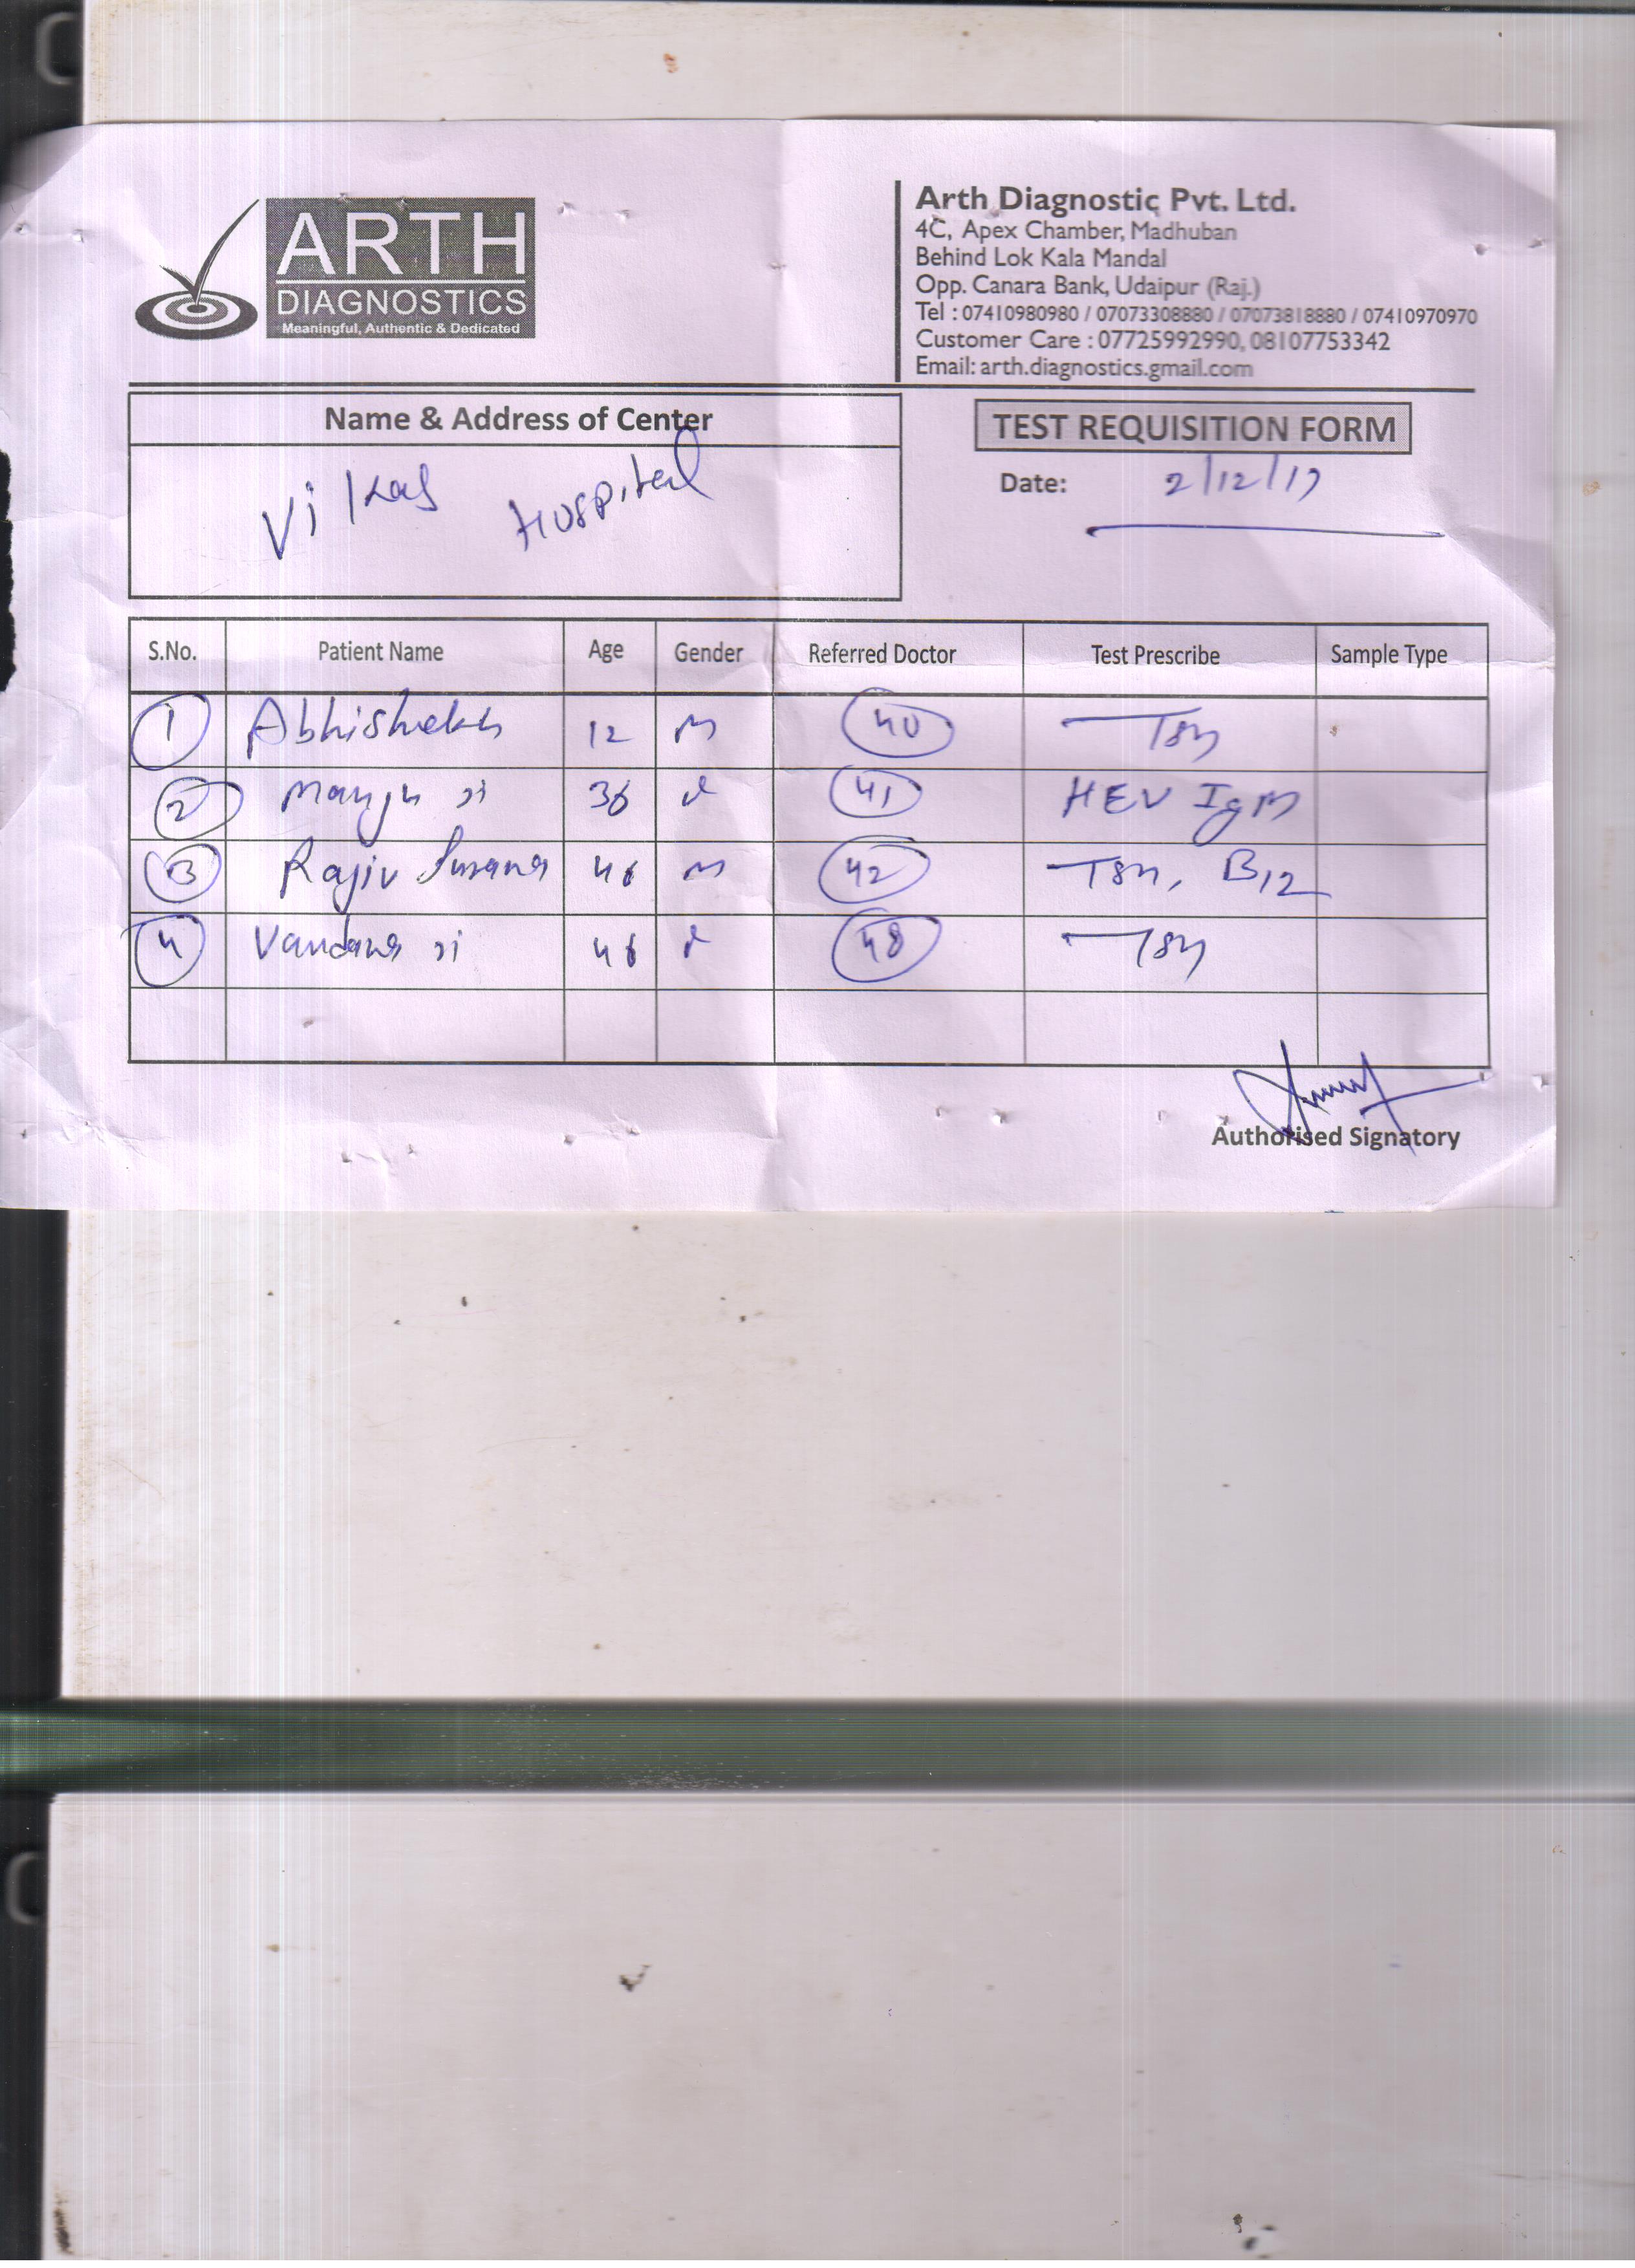 ARTH
DIAGNOSTICS
Meaningful, Authentic & Dedicated
Arth Diagnostic Pvt. Ltd.
4C, Apex Chamber, Madhuban
Behind Lok Kala Mandal
Opp. Canara Bank, Udaipur (Raj.)
Tel : 07410980980 / 07073308880 / 07073818880 / 07410970970
Customer Care : 07725992990, 08107753342
Email: arth.diagnostics.gmail.com
Name & Address of Center
Vikas Hospital
TEST REQUISITION FORM
Date: 2/12/17
S.No. Patient Name Age Gender Referred Doctor Test Prescribe Sample Type
1 Abhishekh 12 M 40 TSH
2 Manju 36 41 HEV IgM
3 Rajiv 46 M 42 TSH, B12
4 Vandana 46 48 TSH
Authorised Signatory